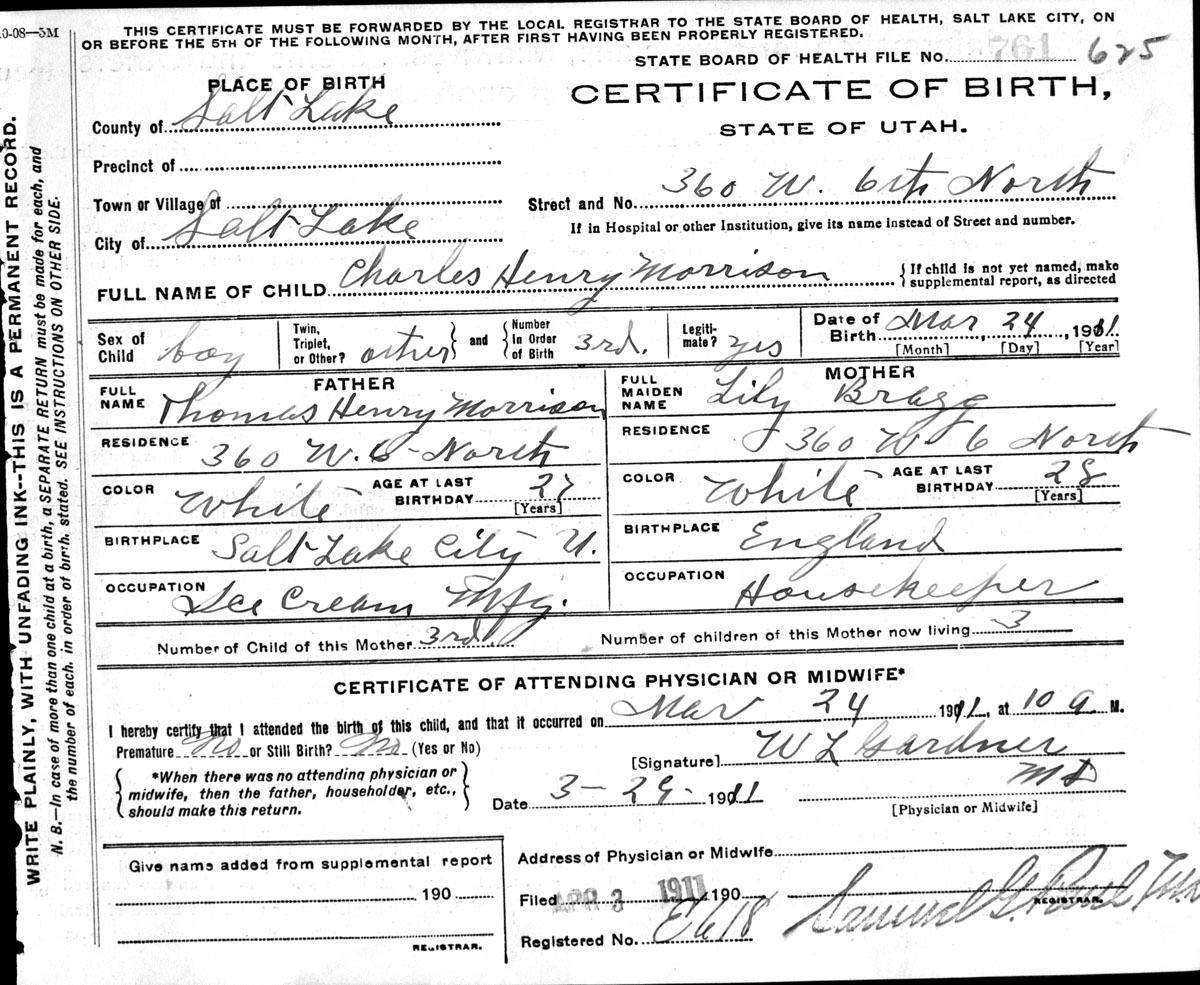 10-08—3M
THIS CERTIFICATE MUST BE FORWARDED BY THE LOCAL REGISTRAR TO THE STATE BOARD OF HEALTH, SALT LAKE CITY, ON
OR BEFORE THE 5TH OF THE FOLLOWING MONTH, AFTER FIRST HAVING BEEN PROPERLY REGISTERED.
STATE BOARD OF HEALTH FILE No. 761 625
PLACE OF BIRTH
CERTIFICATE OF BIRTH,
STATE OF UTAH.
County of Salt Lake
Precinct of
Town or Village of
Street and No. 360 W. 6th North
City of Salt Lake
If in Hospital or other Institution, give its name instead of Street and number.
FULL NAME OF CHILD Charles Henry Morrison
{ If child is not yet named, make
supplemental report, as directed
Sex of Child boy
Twin, Triplet, or Other? other
and
Number In Order of Birth 3rd.
Legiti-mate? yes
Date of Birth Mar 24, 1911
[Month] [Day] [Year]
FATHER
FULL NAME Thomas Henry Morrison
RESIDENCE 360 W. 6 North
COLOR White
AGE AT LAST BIRTHDAY 27
[Years]
BIRTHPLACE Salt Lake City U.
OCCUPATION Ice Cream Mfg.
MOTHER
FULL MAIDEN NAME Lily Bragg
RESIDENCE 360 W 6 North
COLOR White
AGE AT LAST BIRTHDAY 28
[Years]
BIRTHPLACE England
OCCUPATION Housekeeper
Number of Child of this Mother 3rd
Number of children of this Mother now living 3
CERTIFICATE OF ATTENDING PHYSICIAN OR MIDWIFE*
I hereby certify that I attended the birth of this child, and that it occurred on Mar 24 1911, at 10 a M.
Premature No or Still Birth? No (Yes or No)
[Signature] W L Gardner
M D
[Physician or Midwife]
*When there was no attending physician or
midwife, then the father, householder, etc.,
should make this return.
Date 3-29-1911
Give name added from supplemental report
190
REGISTRAR.
Address of Physician or Midwife
Filed APR 3 1911 190
Samuel G. Paul
REGISTRAR.
Registered No. E618
WRITE PLAINLY, WITH UNFADING INK--THIS IS A PERMANENT RECORD.
N. B.—In case of more than one child at a birth, a SEPARATE RETURN must be made for each, and
the number of each, in order of birth, stated. SEE INSTRUCTIONS ON OTHER SIDE.